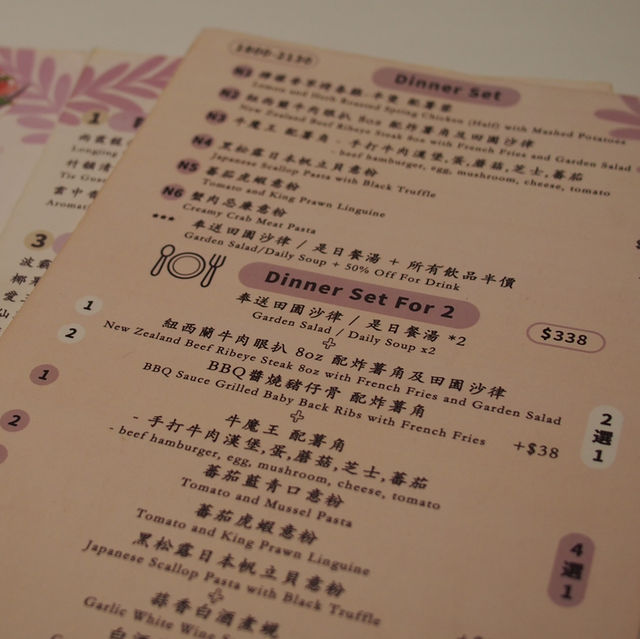 1800-2130
Dinner Set
N1
Lemon and Herb Roasted Spring Chicken (Half) with Mashed Potatoes
N2 紐西蘭牛肉眼扒 8oz 配炸薯角及田園沙律
New Zealand Beef Ribeye Steak 8oz with French Fries and Garden Salad
N3 牛魔王 配薯角 - 手打牛肉漢堡,蛋,蘑菇,芝士,蕃茄
- beef hamburger, egg, mushroom, cheese, tomato
N4 黑松露日本帆立貝意粉
Japanese Scallop Pasta with Black Truffle
N5 蕃茄虎蝦意粉
Tomato and King Prawn Linguine
N6 蟹肉忌廉意粉
Creamy Crab Meat Pasta
... 奉送田園沙律 / 是日餐湯 + 所有飲品半價
Garden Salad/Daily Soup + 50% Off For Drink
Dinner Set For 2
$338
奉送田園沙律 / 是日餐湯 *2
Garden Salad / Daily Soup x2
+
紐西蘭牛肉眼扒 8oz 配炸薯角及田園沙律
New Zealand Beef Ribeye Steak 8oz with French Fries and Garden Salad
BBQ醬燒豬仔骨 配炸薯角
BBQ Sauce Grilled Baby Back Ribs with French Fries
+$38
2選1
+
牛魔王 配薯角
- 手打牛肉漢堡,蛋,蘑菇,芝士,蕃茄
- beef hamburger, egg, mushroom, cheese, tomato
蕃茄藍青口意粉
Tomato and Mussel Pasta
蕃茄虎蝦意粉
Tomato and King Prawn Linguine
黑松露日本帆立貝意粉
Japanese Scallop Pasta with Black Truffle
4選1
+
蒜香白酒煮蜆
Garlic White Wine
白酒
1
3
1
2
1
2